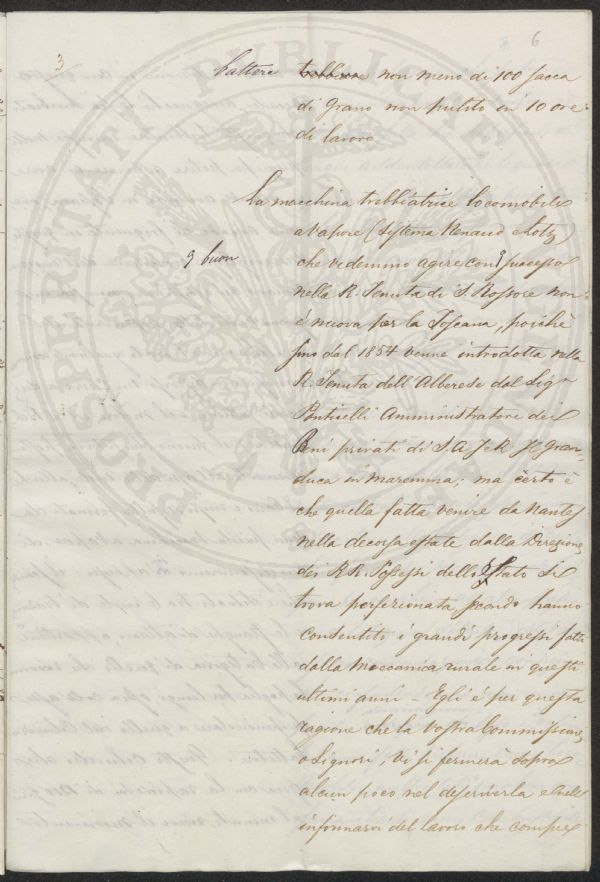 3
6
battere trebbiare non meno di 100 sacca
di Grano non pulito in 10 ore
di lavoro
La macchina trebbiatrice locomobile
a Vapore (Sistema Renaud e Lotz)
che vedemmo agire con successo
buon
nella R. Tenuta di S. Rossore non
è nuova per la Toscana, poichè
fino dal 1854 venne introdotta nella
R. Tenuta dell'Alberese dal Sigr
Ponticelli Amministratore dei
Beni privati di S. A. I. e R. Il Gran-
duca in Maremma; ma certo è
che quella fatta venire da Nantes
nella decorsa estate dalla Direzione
dei RR. Possessi dello Stato si
trova perfezionata, secondo hanno
consentiti i grandi progressi fatti
dalla Meccanica rurale in questi
ultimi anni - Egli è per questa
ragione che la Vostra Commissione,
o Signori, vi si fermerà sopra
alcun poco nel descriverla e nell'
informarvi del lavoro che compie
PROSPERITATI PUBLICAE